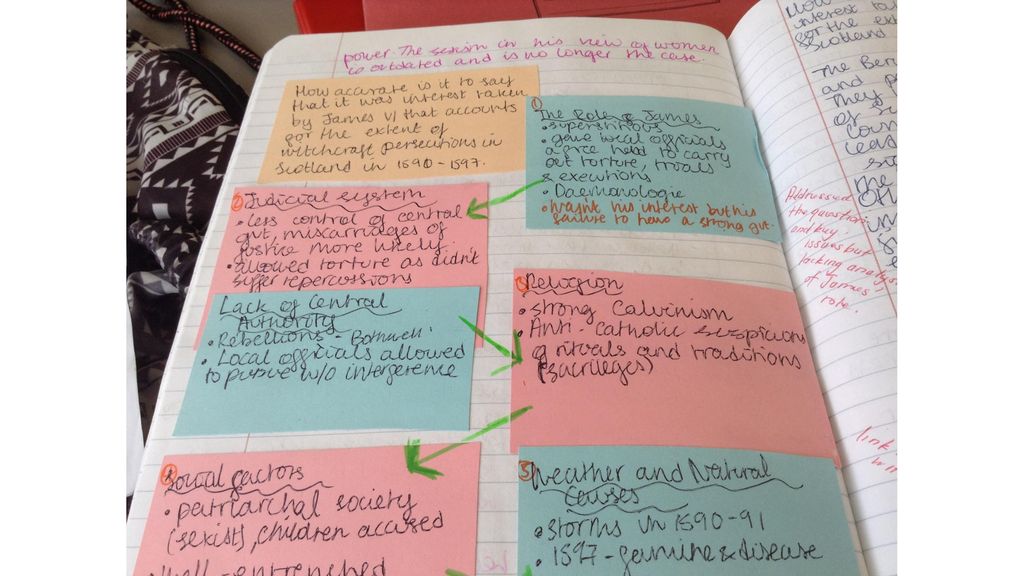 power. The sexism in his view of women
is outdated and is no longer the case.
How accurate is it to say
that it was interest taken
by James VI that accounts
for the extent of
witchcraft persecutions in
Scotland in 1590-1597.
① The Role of James
• superstitious
• gave local officials
a free hand to carry
out torture, trials
& executions
• Daemonologie
• Wasn't his interest but his
failure to have a strong gvt.
② Judicial system
• less control of central
gvt, miscarriages of
justice more likely
• allowed torture as didn't
suffer repercussions
Lack of Central
Authority
• Rebellions - Bothwell
• Local officials allowed
to pursue w/o interference
③ Religion
• strong Calvinism
• Anti-Catholic suspicions
of rituals and traditions
(sacrileges)
④ Social factors
• patriarchal society
(sexist), children accused
• well-entrenched
⑤ Weather and Natural
Causes
• storms in 1590-91
• 1597 - famine & disease
How
interest ta
for the ext
Scotland
The Ber
and p
They p
of
Coun
the
Addressed
the question
and key
issues but
lacking analysis
of James'
role.
link